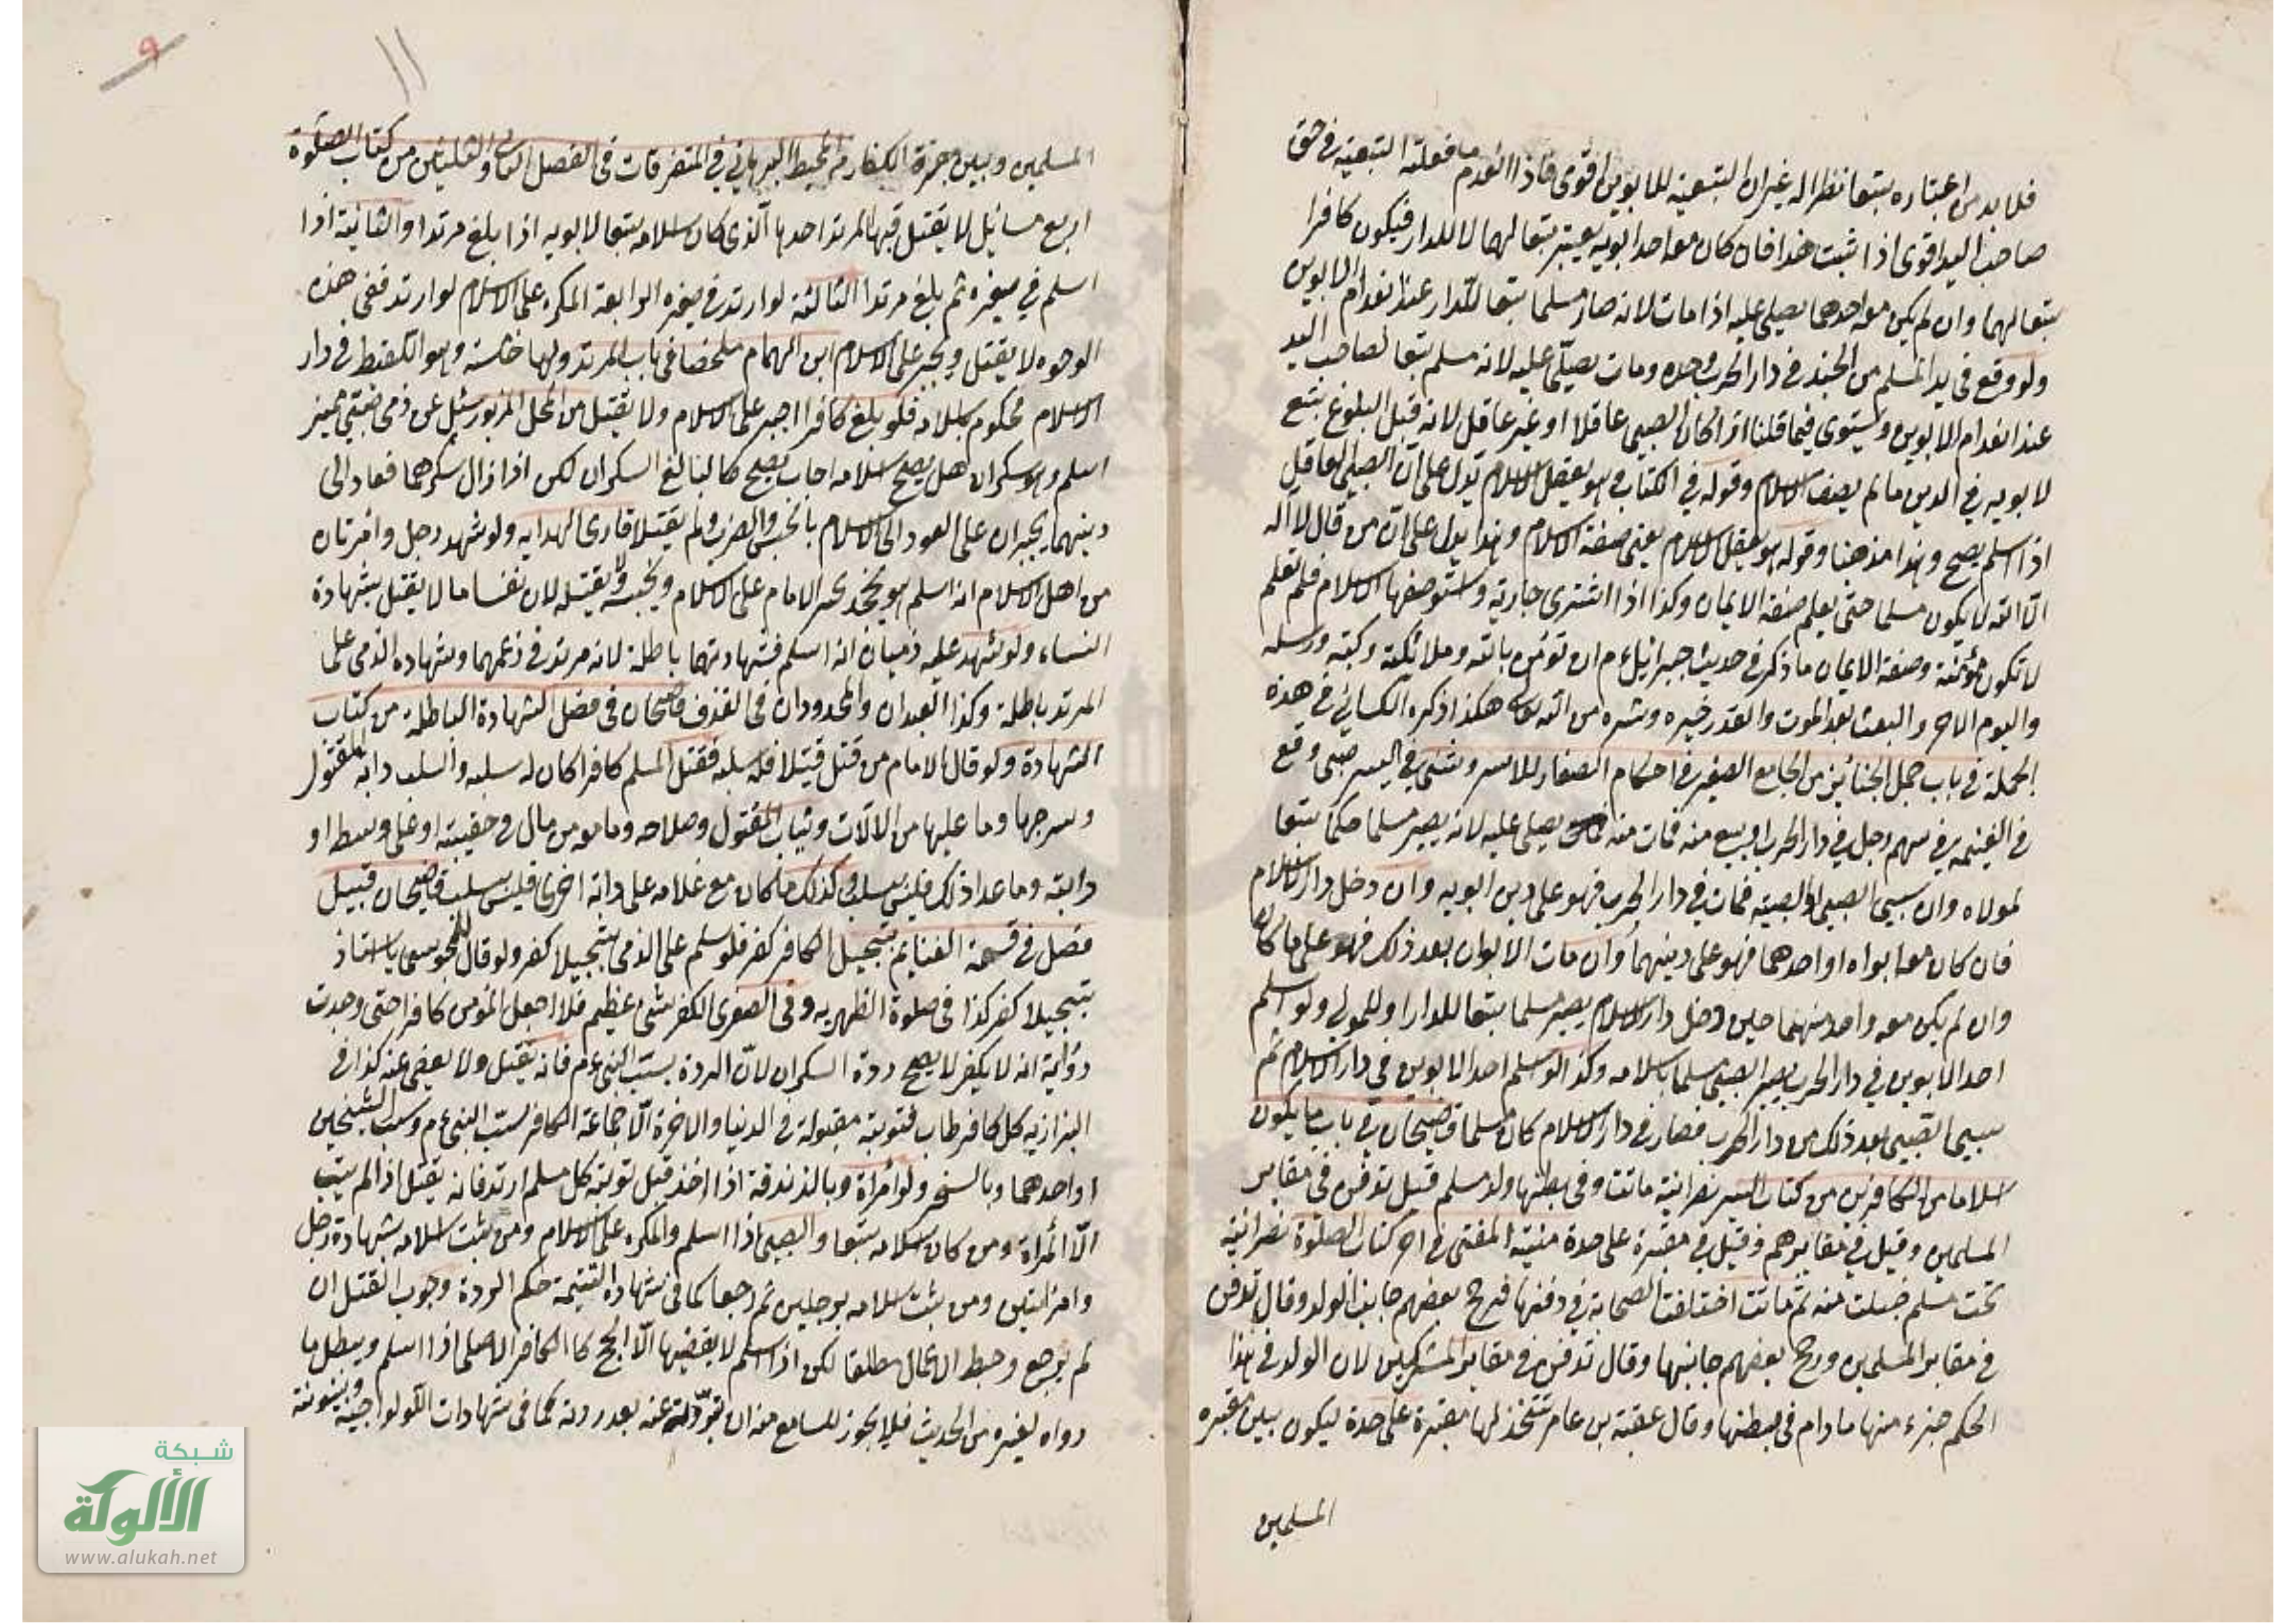 فلا بد من اعتباره تبعا نظرا له غير ان التبعية للابوين اقوى فاذا انعدم ما فعلته التبعية في حق
صاحب اليد اقوى اذا ثبت هذا فان كان معه احد ابويه يعتبر تبعا لهما لا للدار فيكون كافرا
تبعا لهما وان لم يكن معه احدهما يصلى عليه اذا مات لانه صار مسلما تبعا للدار عند انعدام الابوين
ولو وقع في يد المسلم من الجند في دار الحرب وحده ومات يصلى عليه لانه مسلم تبعا لصاحب اليد
عند انعدام الابوين ويستوي فيما قلنا اذا كان الصبي عاقلا او غير عاقل لانه قبل البلوغ يتبع
لابويه في الدين ما لم يصف الاسلام وقوله في الكتاب وهو يعقل الاسلام يدل على ان الصبي العاقل
اذا اسلم يصح وهذا مذهبنا وقوله هو يعقل الاسلام يعني صفة الاسلام وهذا يدل على ان من قال لا اله
الا الله لا يكون مسلما حتى يعلم صفة الايمان وكذا اذا اشترى جارية واستوصفها الاسلام فلم تعلم
لا تكون مؤمنة وصفة الايمان ما ذكر في حديث جبرائيل عم ان تؤمن بالله وملائكته وكتبه ورسله
واليوم الاخر والبعث بعد الموت والقدر خيره وشره من الله تعالى هكذا ذكره الكساني في هذه
الجملة في باب حمل الجنائز من الجامع الصغير في احكام الصغار للاسروشني في السير صبي وقع
في الغنيمة في سهم رجل في دار الحرب او بيع منه فمات منه يصلى عليه لانه يصير مسلما حكما تبعا
لمولاه وان سبي الصبي او الصبية فمات في دار الحرب فهو على دين ابويه وان دخل دار الاسلام
فان كان معه ابواه او احدهما فهو على دينهما وان مات الابوان بعد ذلك فهو على ما كان
وان لم يكن معه واحد منهما حين دخل دار الاسلام يصير مسلما تبعا للدار او للمولى ولو اسلم
احد الابوين في دار الحرب يصير الصبي مسلما باسلامه وكذا لو اسلم احد الابوين في دار الاسلام ثم
سبي الصبي بعد ذلك من دار الحرب فصار في دار الاسلام كان مسلما قاضيخان في باب ما يكون
اسلاما من الكافر من كتاب السير نصرانية ماتت وفي بطنها ولد مسلم قيل تدفن في مقابر
المسلمين وقيل في مقابرهم وقيل في مقبرة على حدة منية المفتي في اخر كتاب الصلوة نصرانية
تحت مسلم حبلت منه ثم ماتت اختلفت الصحابة في دفنها فرجح بعضهم جانب الولد وقال تدفن
في مقابر المسلمين ورجح بعضهم جانبها وقال تدفن في مقابر المشركين لان الولد في هذا
الحكم جزء منها ما دام في بطنها وقال عقبة بن عامر تتخذ لها مقبرة على حدة ليكون بين مقبره
المسلمين
٩
١١
المسلمين وبين مقبرة الكفار من المحيط البرهاني في المتفرقات في الفصل الثاني والثلثين من كتاب الصلوة
اربع مسائل لا يقتل فيها المرتد احدها الذي كان اسلامه تبعا لابويه اذا بلغ مرتدا والثانية اذا
اسلم في صغره ثم بلغ مرتدا الثالثة لو ارتد في صغره الرابعة المكره على الاسلام لو ارتد ففي هذه
الوجوه لا يقتل ويجبر على الاسلام ابن الهمام ملخصا في باب المرتد ولها خامسة وهو اللقيط في دار
الاسلام محكوم باسلامه فلو بلغ كافرا اجبر على الاسلام ولا يقتل من المحل المزبور سئل عن ذمي صبي مميز
اسلم وهو سكران هل يصح اسلامه اجاب يصح كالبالغ السكران لكن اذا زال سكرهما فعاد الى
دينهما يجبران على العود الى الاسلام بالحبس والضرب ولم يقتلا قارئ الهدايه ولو شهد رجل وامرتان
من اهل الاسلام انه اسلم وهو يجحد يجبر الامام على الاسلام ويحبسه ولا يقتله لان نفسا ما لا يقتل بشهادة
النساء ولو شهد عليه ذميان انه اسلم فشهادتهما باطلة لانه مرتد في زعمهما وشهاده الذمي على
المرتد باطلة وكذا العبدان والمحدودان في القذف قاضيخان في فصل الشهادة الباطلة من كتاب
الشهادة ولو قال الامام من قتل قتيلا فله سلبه فقتل المسلم كافرا كان له سلبه والسلب دابة المقتول
وسرجها وما عليها من الآلات وثياب المقتول وصلاحه وما معه من مال في حقيبته او على وسطه او
دابته وما عدا ذلك فليس بسلب وكذلك ما كان مع غلامه على دابة اخرى فليس بسلب قاضيخان قبيل
فصل في قسمة الغنايم تبجيل الكافر كفر فلو سلم على الذمي تبجيلا كفر ولو قال للمجوسي يا استاذ
تبجيلا كفر كذا في صلوة الظهيريه وفي الصغرى الكفر شئ عظيم فلا اجعل المؤمن كافرا حتى وجدت
رواية انه لا يكفر لا يصح ردة السكران لان الردة بسب النبي عم فانه يقتل ولا يعفى عنه كذا في
البزازيه كل كافر طاب فتوبته مقبولة في الدنيا والاخرة الا جماعة الكافر بسب النبي عم وسب الشيخين
او احدهما وبالسحر ولو امراة وبالزندقة اذا اخذ قبل توبته كل مسلم ارتد فانه يقتل اذا لم يتب
الا المراة ومن كان اسلامه تبعا والصبي اذا اسلم والمكره على الاسلام ومن ثبت اسلامه بشهادة رجل
وامراتين ومن ثبت اسلامه برجلين ثم رجعا كما في شهاده التتيمة حكم الردة وجوب القتل ان
لم يرجع وحبط الاعمال مطلقا لكن اذا اسلم لا يقضيها الا الحج كا الكافر الاصلي اذا اسلم ويبطل ما
رواه لغيره من الحديث فلا يجوز للسامع منه ان يرويه عنه بعد ردته كما في شهادات الولوالجية وبينونة
شبكة
الألوكة
www.alukah.net